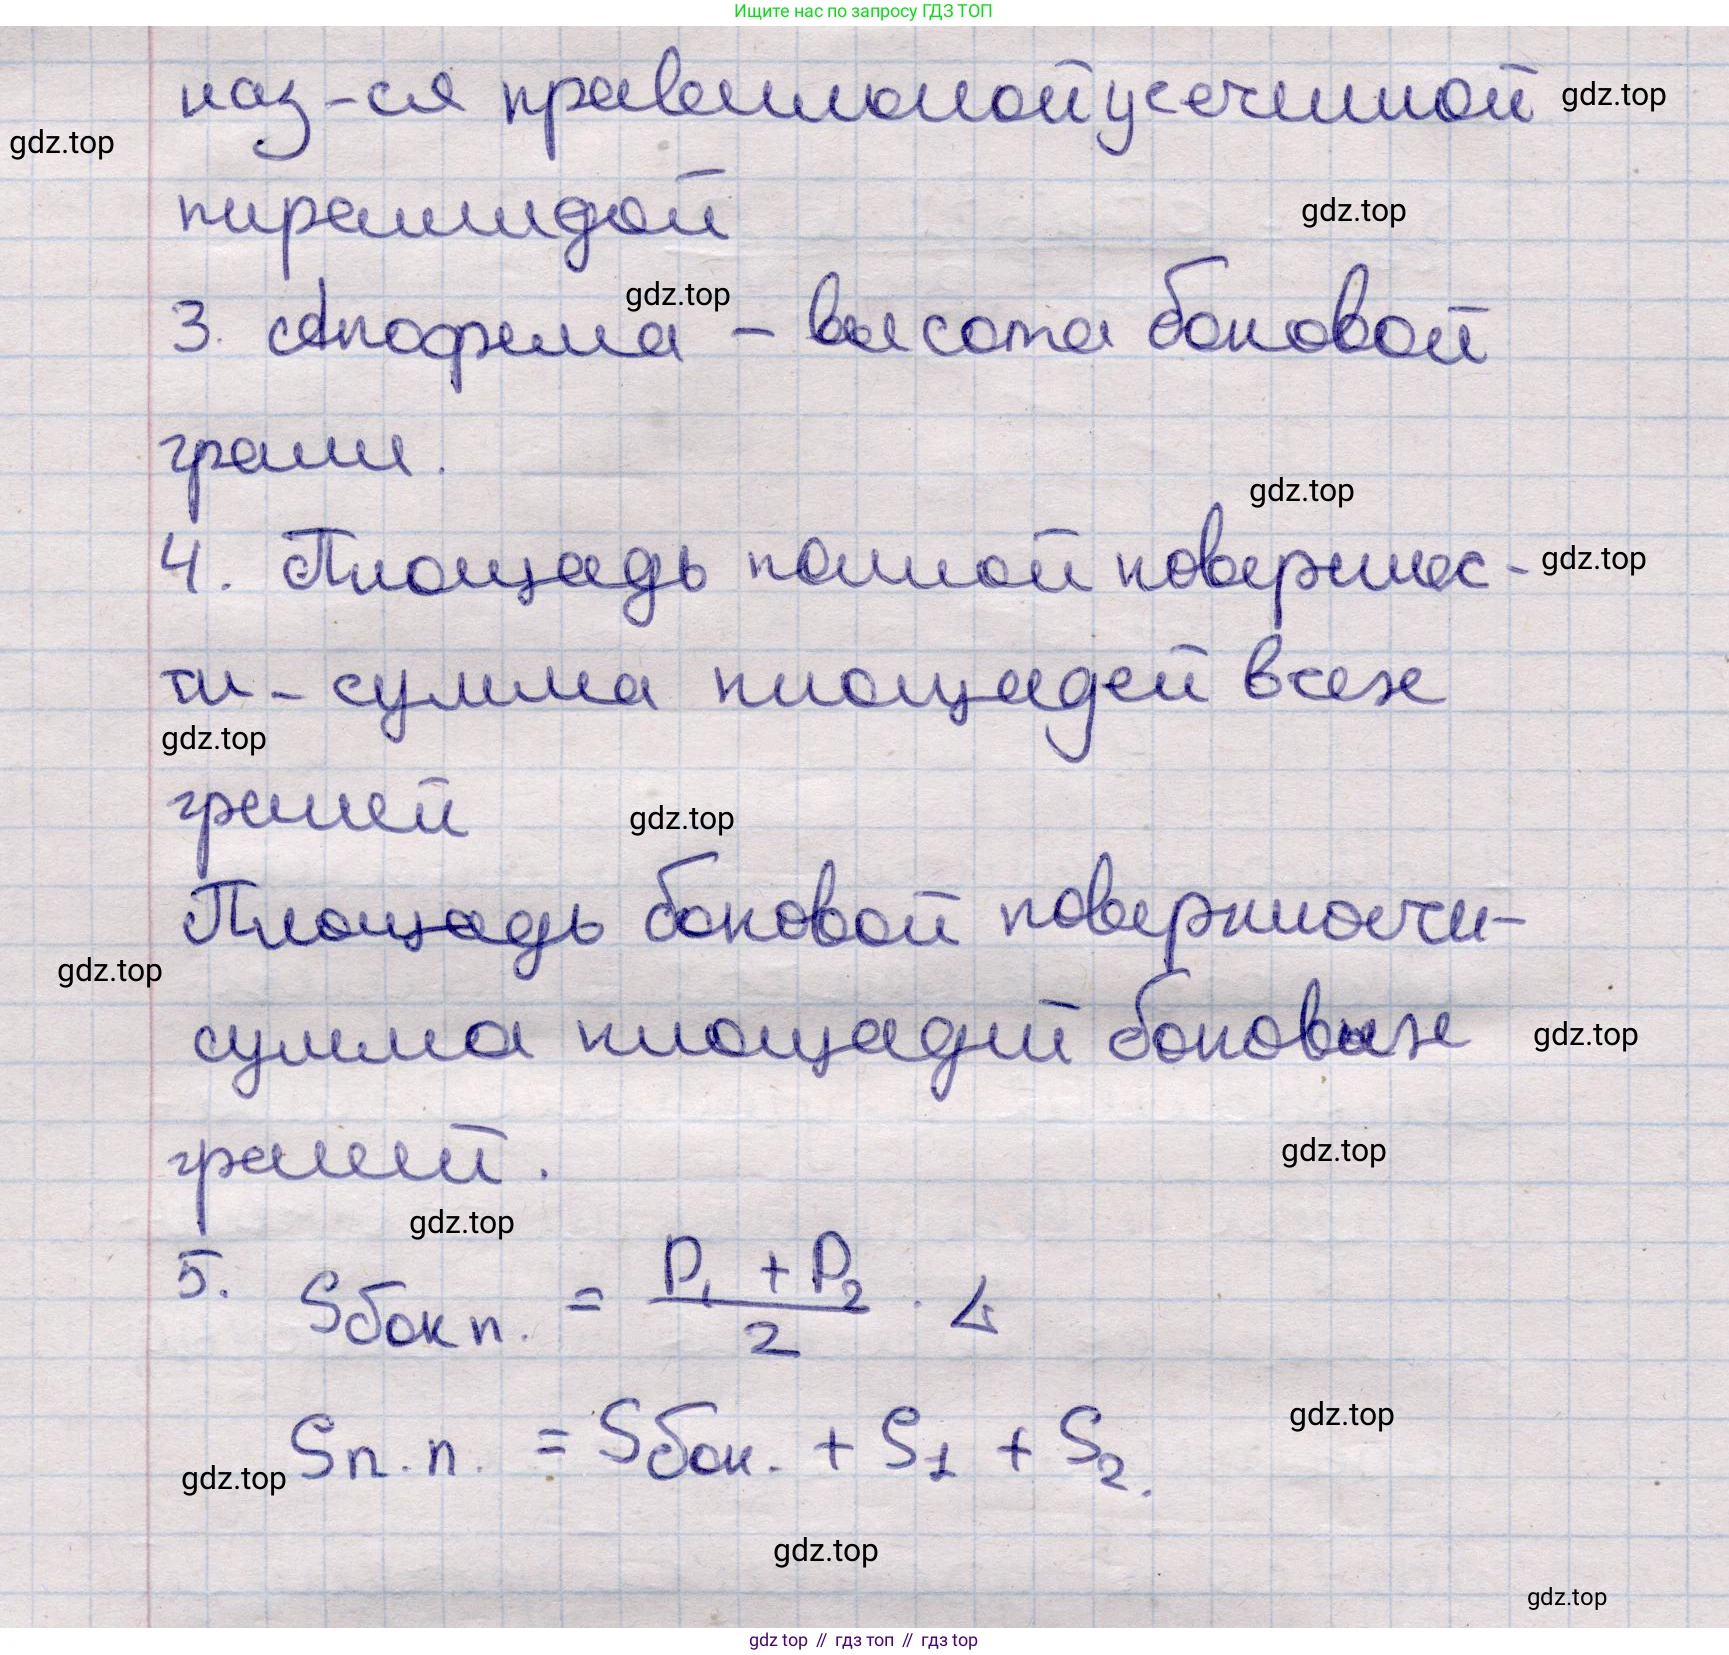 Ищите нас по запросу ГДЗ ТОП
наз-ся правильной усечинной gdz.top
gdz.top
пирамидой gdz.top
gdz.top
3. Апофема – высота боковой
грани.
gdz.top
4. Площадь полной поверхнос- gdz.top
ти – сумма площадей всех
gdz.top
граней gdz.top
Площадь боковой поверхности-
gdz.top
сумма площадей боковых gdz.top
граней. gdz.top
gdz.top
5. Sбок п. = P₁ + P₂ / 2 ·
gdz.top
Sп.п. = Sбок. + S₁ + S₂.
gdz.top
gdz.top
gdz.top
gdz top // гдз топ // гдз top